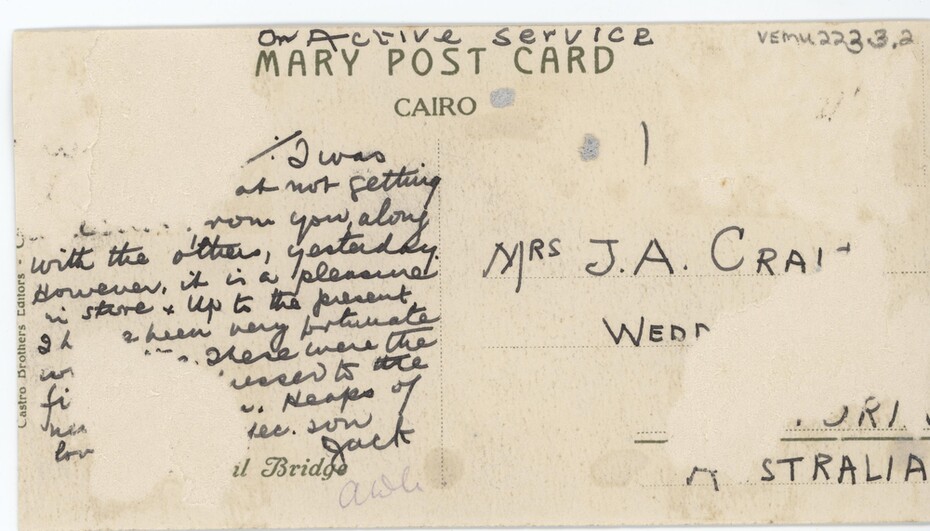 On Active service
VEMU223.3.2
MARY POST CARD
CAIRO
I was
at not getting
rom you, along
with the others, yesterday.
However, it is a pleasure
in store & up to the present
I h been very fortunate
These were the
essed to the
fi Heaps of
lov son
Jack
il Bridge
Castro Brothers Editors
1
MRS J.A. CRAI
WEDD
STRALIA